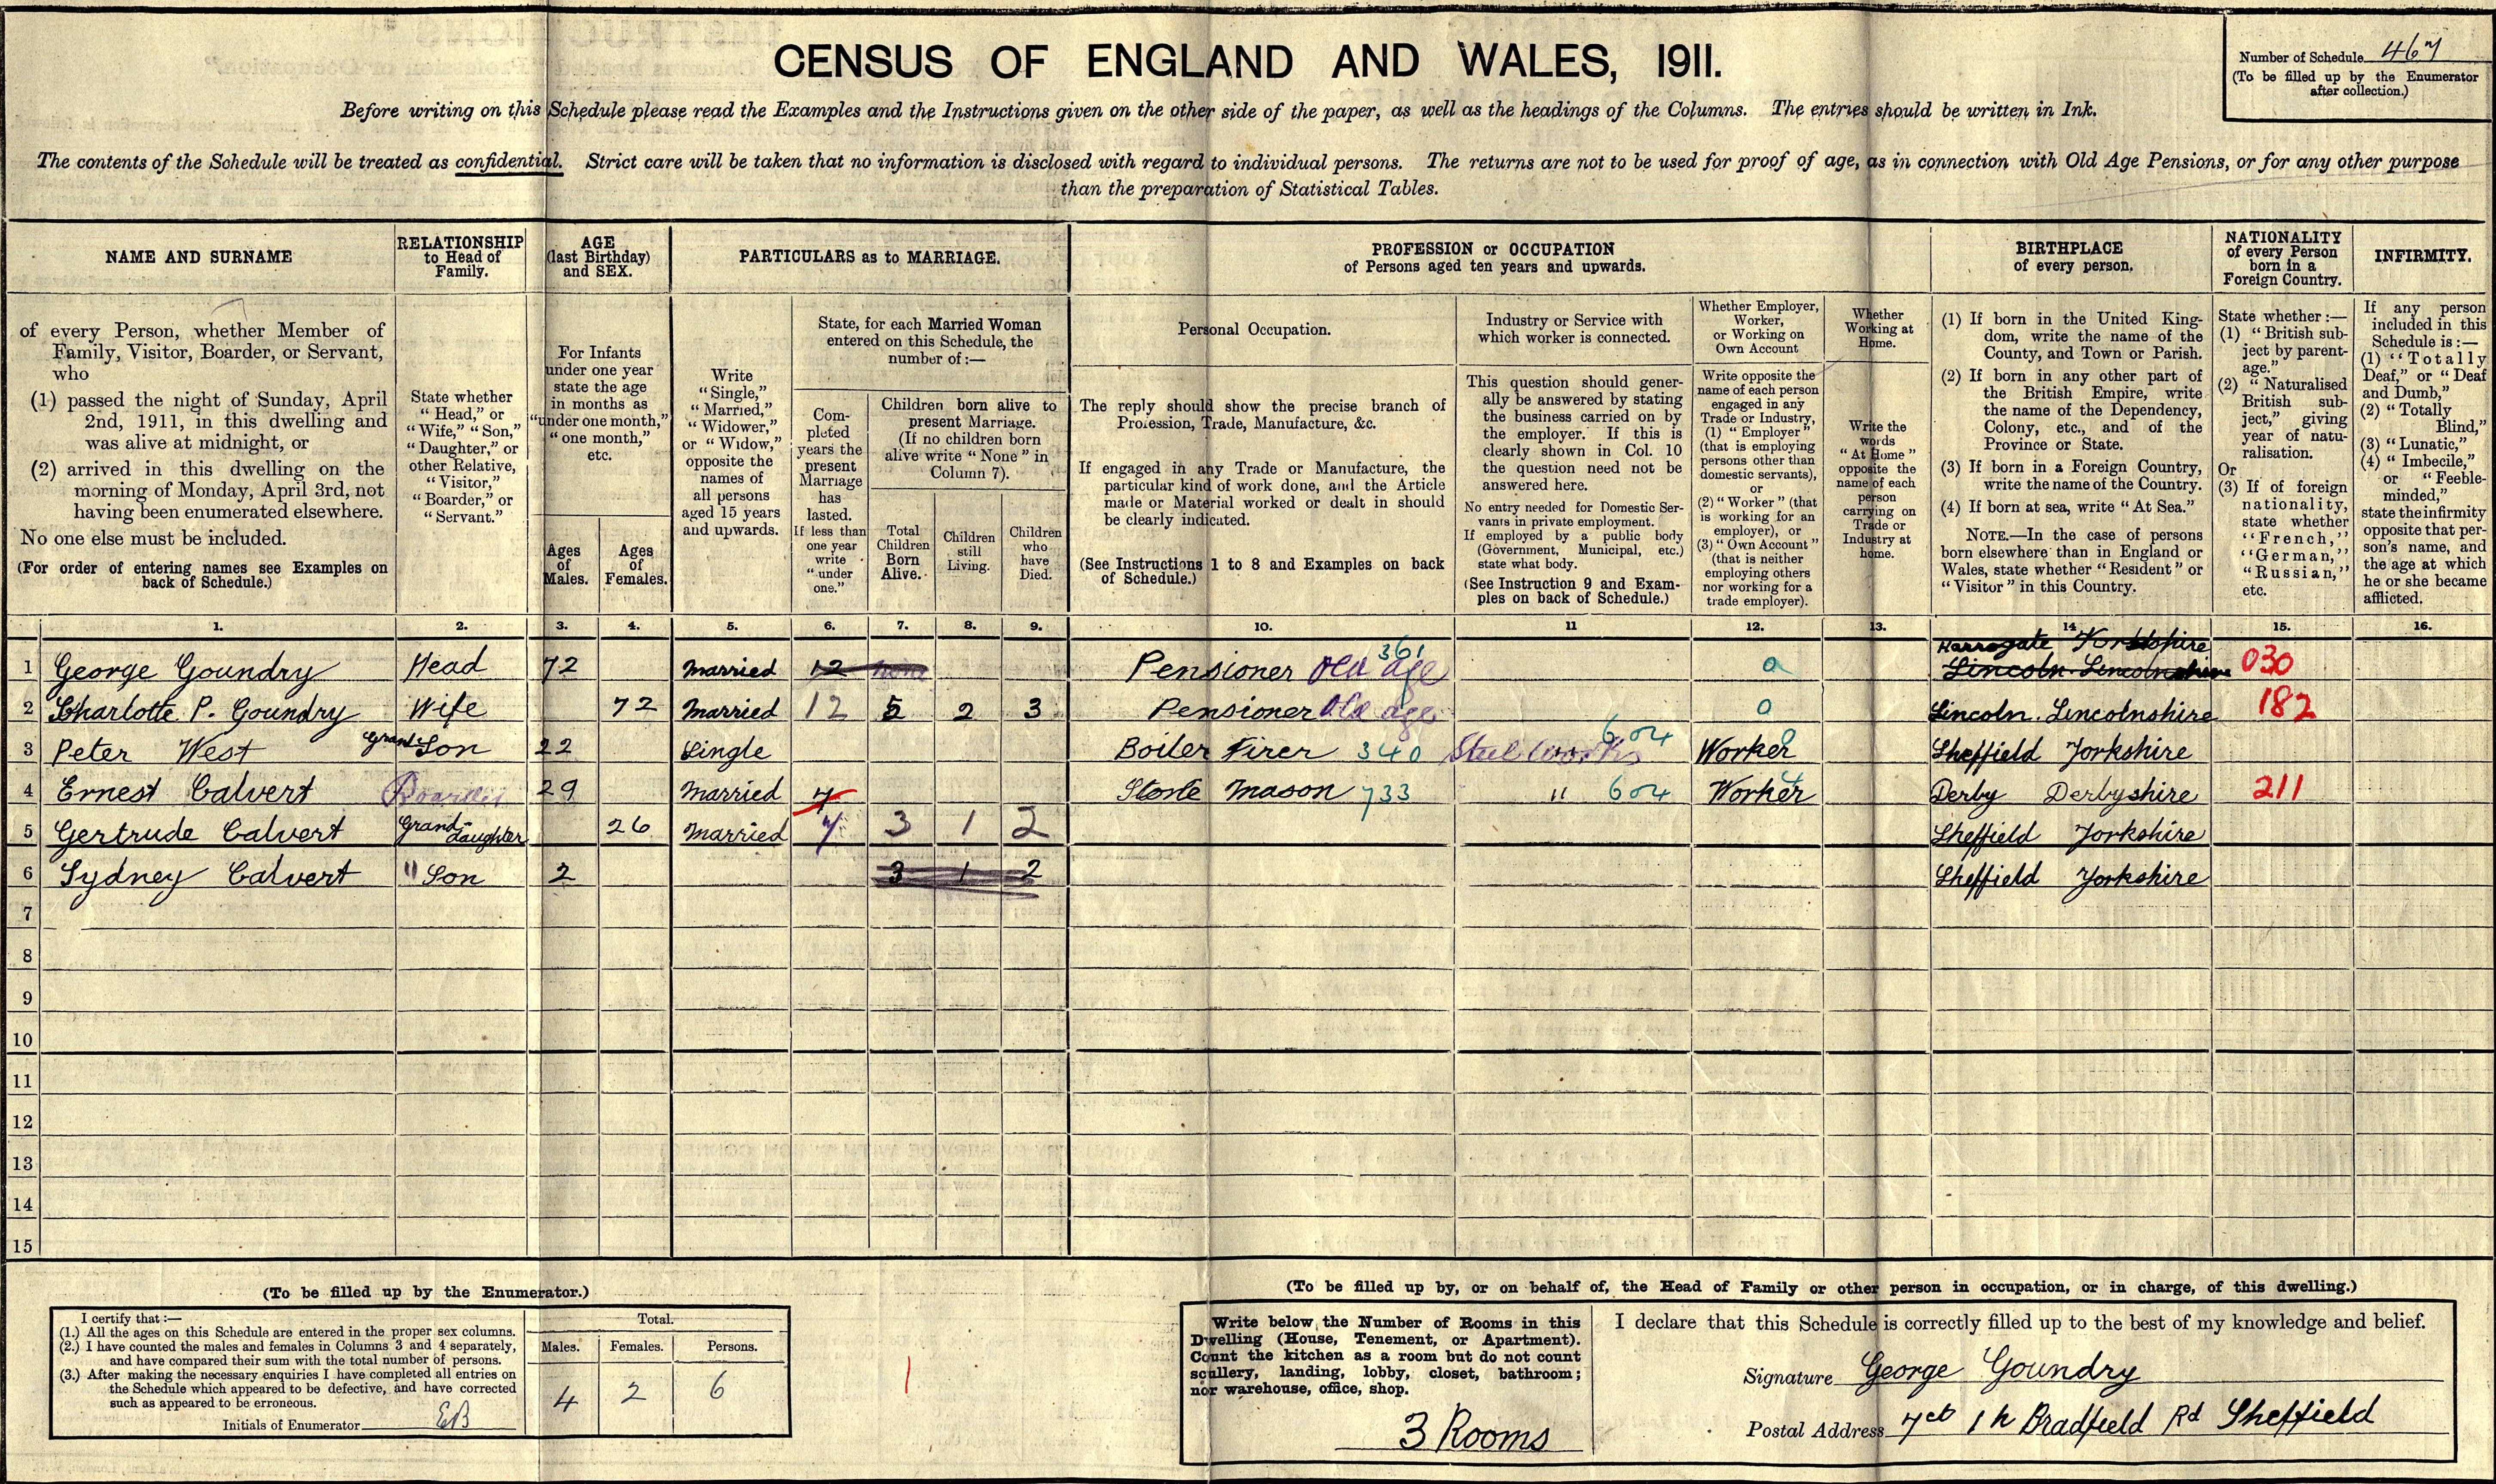 CENSUS OF ENGLAND AND WALES, 1911.
Number of Schedule 467
(To be filled up by the Enumerator
after collection.)
Before writing on this Schedule please read the Examples and the Instructions given on the other side of the paper, as well as the headings of the Columns. The entries should be written in Ink.
The contents of the Schedule will be treated as confidential. Strict care will be taken that no information is disclosed with regard to individual persons. The returns are not to be used for proof of age, as in connection with Old Age Pensions, or for any other purpose
than the preparation of Statistical Tables.
NAME AND SURNAME
of every Person, whether Member of
Family, Visitor, Boarder, or Servant,
who
(1) passed the night of Sunday, April
2nd, 1911, in this dwelling and
was alive at midnight, or
(2) arrived in this dwelling on the
morning of Monday, April 3rd, not
having been enumerated elsewhere.
No one else must be included.
(For order of entering names see Examples on
back of Schedule.)
RELATIONSHIP
to Head of
Family.
State whether
"Head," or
"Wife," "Son,"
"Daughter," or
other Relative,
"Visitor,"
"Boarder," or
"Servant."
AGE
(last Birthday)
and SEX.
For Infants
under one year
state the age
in months as
"under one month,"
"one month,"
etc.
Ages
of
Males.
Ages
of
Females.
PARTICULARS as to MARRIAGE.
Write
"Single,"
"Married,"
"Widower,"
or "Widow,"
opposite the
names of
all persons
aged 15 years
and upwards.
State, for each Married Woman
entered on this Schedule, the
number of:—
Com-
pleted
years the
present
Marriage
has
lasted.
If less than
one year
write
"under
one."
Children born alive to
present Marriage.
(If no children born
alive write "None" in
Column 7).
Total
Children
Born
Alive.
Children
still
Living.
Children
who
have
Died.
PROFESSION or OCCUPATION
of Persons aged ten years and upwards.
Personal Occupation.
The reply should show the precise branch of
Profession, Trade, Manufacture, &c.
If engaged in any Trade or Manufacture, the
particular kind of work done, and the Article
made or Material worked or dealt in should
be clearly indicated.
(See Instructions 1 to 8 and Examples on back
of Schedule.)
Industry or Service with
which worker is connected.
This question should gener-
ally be answered by stating
the business carried on by
the employer. If this is
clearly shown in Col. 10
the question need not be
answered here.
No entry needed for Domestic Ser-
vants in private employment.
If employed by a public body
(Government, Municipal, etc.)
state what body.
(See Instruction 9 and Exam-
ples on back of Schedule.)
Whether Employer,
Worker,
or Working on
Own Account
Write opposite the
name of each person
engaged in any
Trade or Industry,
(1) "Employer"
(that is employing
persons other than
domestic servants),
or
(2) "Worker" (that
is working for an
employer), or
(3) "Own Account"
(that is neither
employing others
nor working for a
trade employer).
Whether
Working at
Home.
Write the
words
"At Home"
opposite the
name of each
person
carrying on
Trade or
Industry at
home.
BIRTHPLACE
of every person.
(1) If born in the United King-
dom, write the name of the
County, and Town or Parish.
(2) If born in any other part of
the British Empire, write
the name of the Dependency,
Colony, etc., and of the
Province or State.
(3) If born in a Foreign Country,
write the name of the Country.
(4) If born at sea, write "At Sea."
NOTE.—In the case of persons
born elsewhere than in England or
Wales, state whether "Resident" or
"Visitor" in this Country.
NATIONALITY
of every Person
born in a
Foreign Country.
State whether:—
(1) "British sub-
ject by parent-
age."
(2) "Naturalised
British sub-
ject," giving
year of natu-
ralisation.
Or
(3) If of foreign
nationality,
state whether
"French,"
"German,"
"Russian,"
etc.
INFIRMITY.
If any person
included in this
Schedule is:—
(1) "Totally
Deaf," or "Deaf
and Dumb,"
(2) "Totally
Blind,"
(3) "Lunatic,"
(4) "Imbecile,"
or "Feeble-
minded,"
state the infirmity
opposite that per-
son's name, and
the age at which
he or she became
afflicted.
1. 2. 3. 4. 5. 6. 7. 8. 9. 10. 11 12. 13. 14 15. 16.
Harrogate Yorkshire
1 George Goundry Head 72 Married 12 none Pensioner Old age 361 0 Lincoln Lincolnshire 030
2 Charlotte P. Goundry Wife 72 Married 12 5 2 3 Pensioner Old age 0 Lincoln. Lincolnshire 182
3 Peter West Grand Son 22 Single Boiler Firer 340 Steel Works 604 Worker Sheffield Yorkshire
4 Ernest Calvert Boarder 29 Married 7 Stone Mason 733 " 604 Worker Derby Derbyshire 211
5 Gertrude Calvert Grand-daughter 26 Married 7 3 1 2 Sheffield Yorkshire
6 Sydney Calvert " Son 2 3 1 2 Sheffield Yorkshire
7
8
9
10
11
12
13
14
15
(To be filled up by the Enumerator.)
I certify that:—
(1.) All the ages on this Schedule are entered in the proper sex columns.
(2.) I have counted the males and females in Columns 3 and 4 separately,
and have compared their sum with the total number of persons.
(3.) After making the necessary enquiries I have completed all entries on
the Schedule which appeared to be defective, and have corrected
such as appeared to be erroneous.
Initials of Enumerator EB
Total.
Males. Females. Persons.
4 2 6
(To be filled up by, or on behalf of, the Head of Family or other person in occupation, or in charge, of this dwelling.)
Write below the Number of Rooms in this
Dwelling (House, Tenement, or Apartment).
Count the kitchen as a room but do not count
scullery, landing, lobby, closet, bathroom;
nor warehouse, office, shop.
3 Rooms
I declare that this Schedule is correctly filled up to the best of my knowledge and belief.
Signature George Goundry
Postal Address 7ct 1 h Bradfield Rd Sheffield